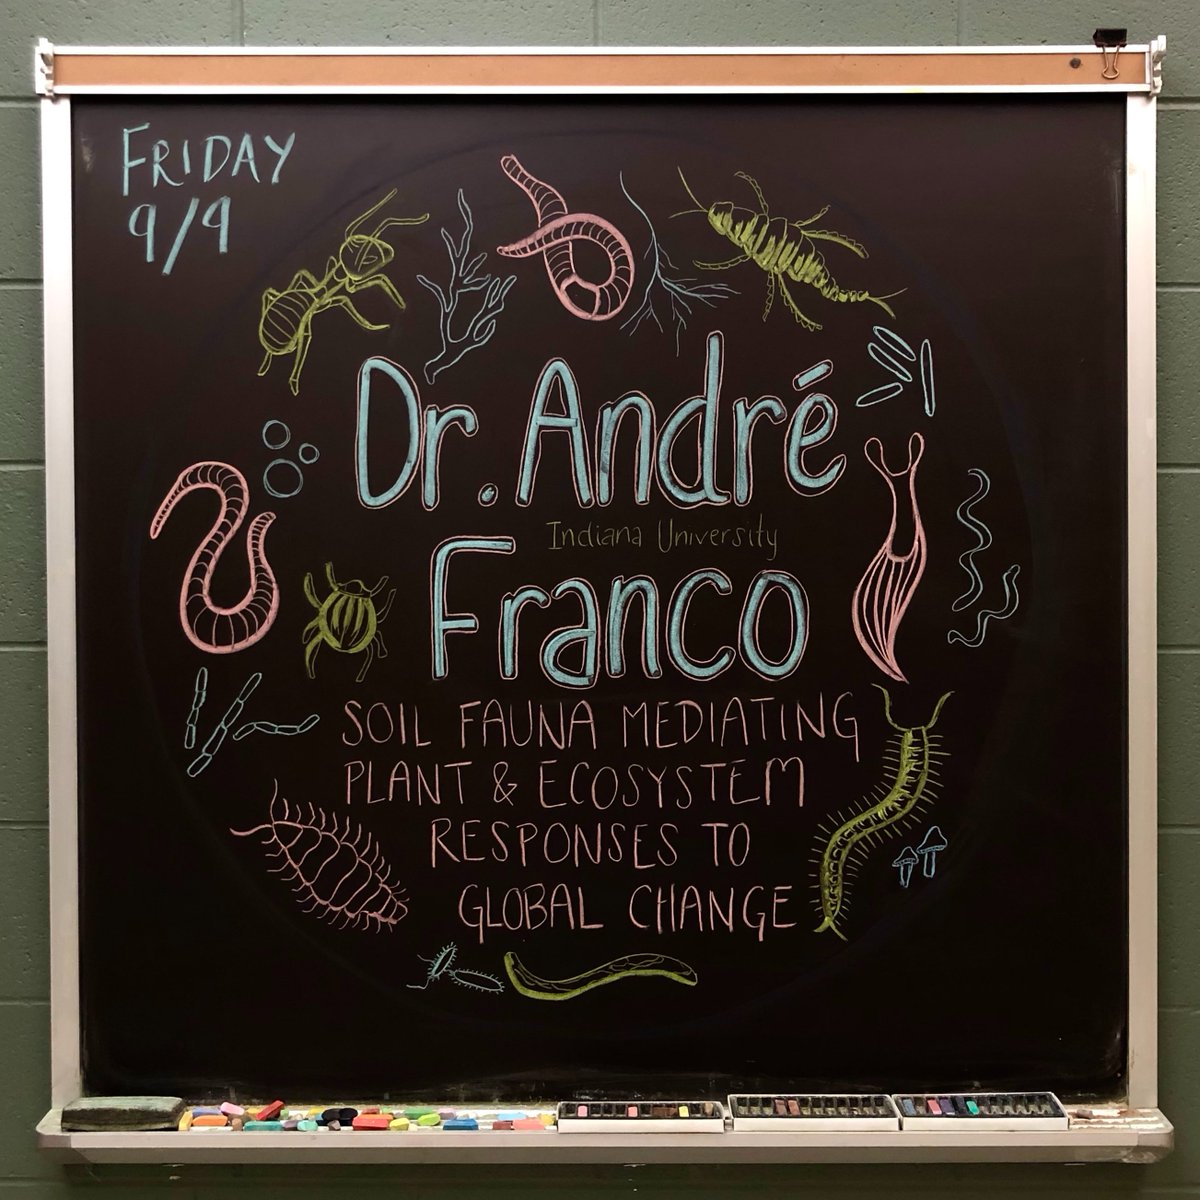 FRIDAY
9/9
Dr. André
Indiana University
Franco
SOIL FAUNA MEDIATING
PLANT & ECOSYSTEM
RESPONSES TO
GLOBAL CHANGE